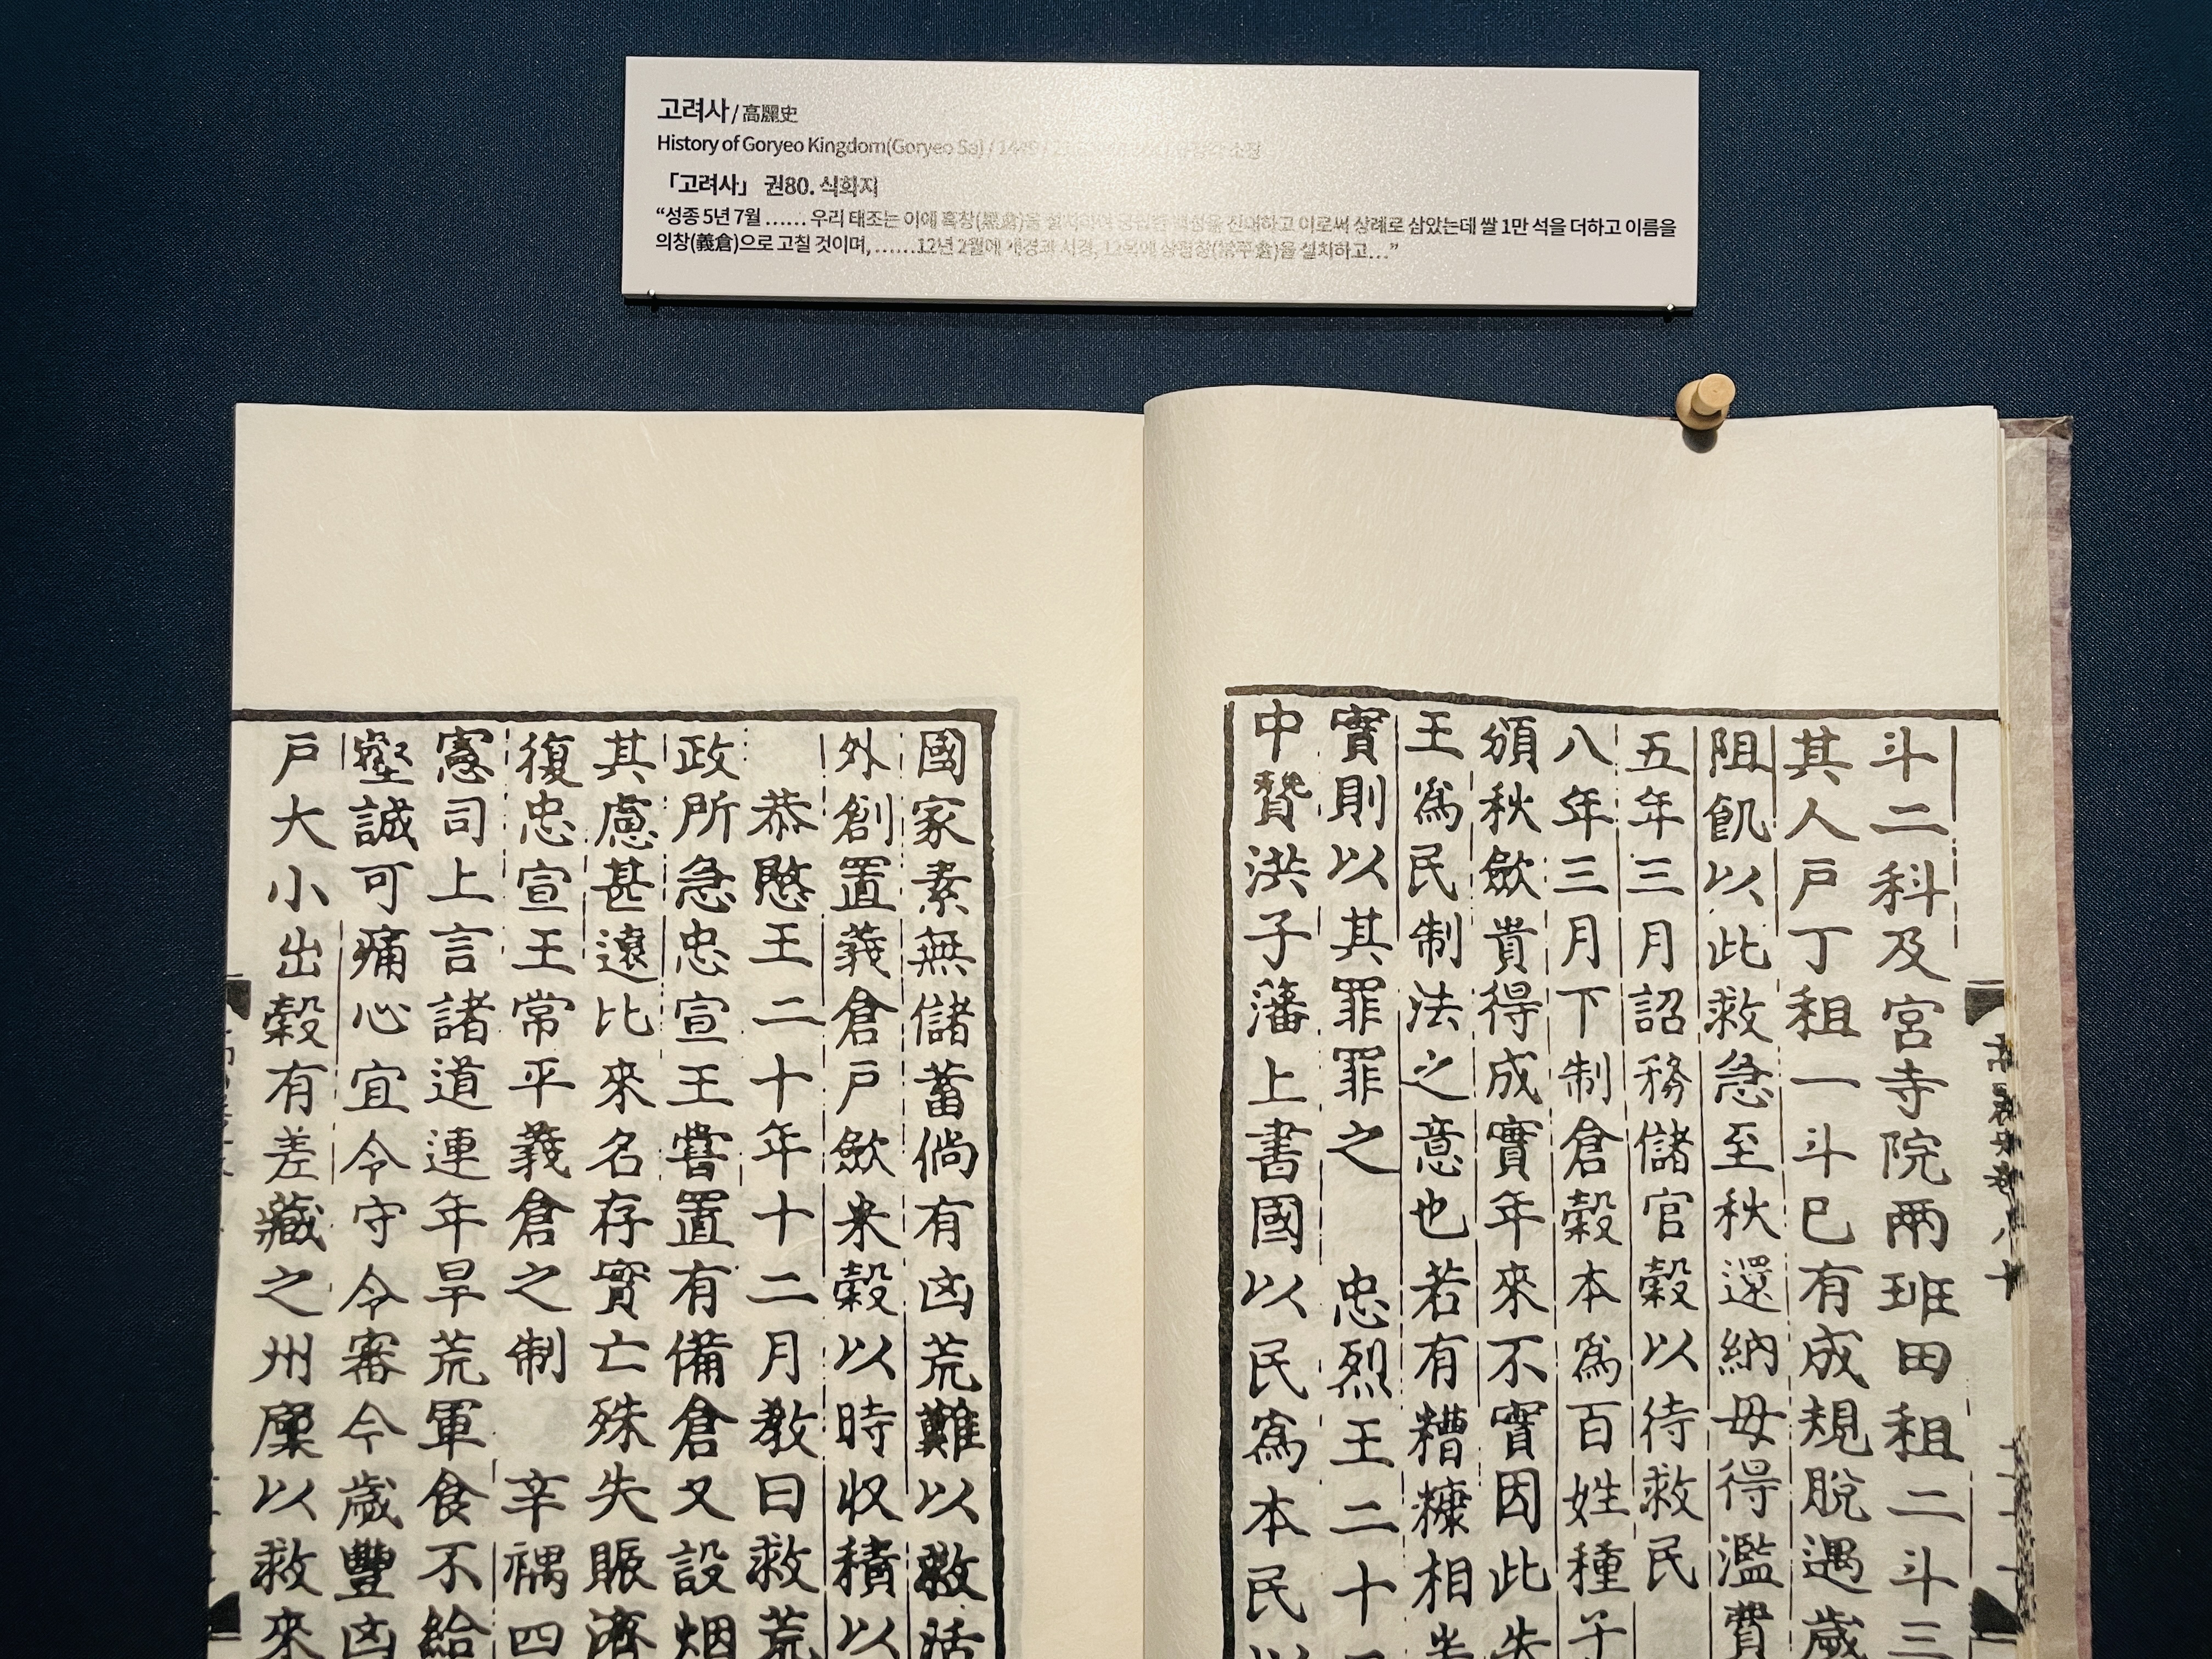 고려사 / 高麗史
History of Goryeo Kingdom(Goryeo Sa) / 1449 / 소장
「고려사」 권80. 식화지
“성종 5년 7월 …… 우리 태조는 이에 흑창(黑倉)을 설치하여 백성을 진대하고 이로써 상례로 삼았는데 쌀 1만 석을 더하고 이름을
의창(義倉)으로 고칠 것이며, ……12년 2월에 개경과 서경, 12목에 상평창(常平倉)을 설치하고…”
斗二科及宮寺院兩班田租二斗三
其人戶丁租一斗已有成規脫遇歲
阻飢以此救急至秋還納毋得濫費
五年三月詔務儲官穀以待救民
八年三月下制倉穀本爲百姓種子
頒秋斂貴得成實年來不實因此失
王爲民制法之意也若有糟糠相半
實則以其罪罪之 忠烈王二十二
中贊洪子藩上書國以民爲本民以
國家素無儲蓄倘有凶荒難以救活
外創置義倉戶斂米穀以時收積以
恭愍王二十年十二月敎曰救荒
政所急忠宣王嘗置有備倉又設烟
其慮甚遠比來名存實亡殊失賑濟
復忠宣王常平義倉之制 辛禑四
憲司上言諸道連年旱荒軍食不給
壑誠可痛心宜令守令審今歲豐凶
戶大小出穀有差藏之州廩以救來